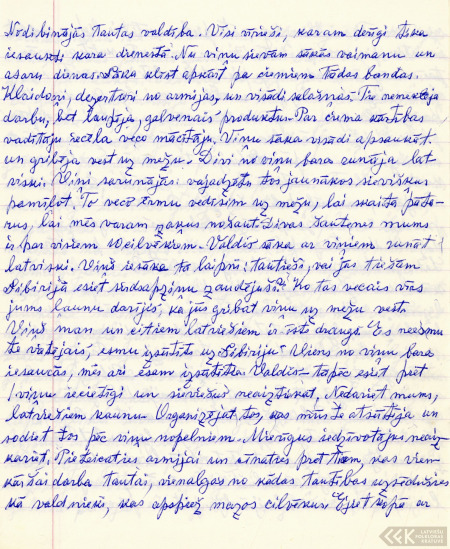 Nodibinājās Tautas valdība. Visi vīrieši, karam derīgi tika
iesaukti kara dienestā. Nu viņu sievām sākās vaimanu un
asaru dienas. Sāka klīst apkārt pa ciemiem tādas bandas.
Klaidoņi, dezertieri no armijas, un visādi salašņas. Tie nemeklēja
darbu, bet laupīja, galvenais produktus. Par ciema kārtības
vadītāju iecēla veco mācītāju. Viņu sāka visādi apsaukāt
un gribēja vest uz mežu. Divi no viņu bara runāja lat
viski. Viņi sarunājās: vajadzētu tās jaunākās sievišķas
pamīļot. To veco zirmu vedīsim uz mežu, lai skaita pāta-
rus, lai mēs varam zaķus nošaut. Divas šautenes mums
ir par visiem 10 cilvēkiem. Valdis sāka ar viņiem runāt
latviski. Viņš iesāka tā laipni: tautieši, vai jūs tiešām
Sibīrijā esiet sirdsapziņu zaudējuši? Ko tas vecais vīrs
jums ļaunu darījis, ka jūs gribat viņu uz mežu vest.
Viņš man un citiem latviešiem ir īsts draugs. Es neesmu
te vietējais, esmu izsūtīts uz Sibīriju. Viens no viņu bara
iesaucās, mēs arī esam izsūtīti. Valdis – tāpēc esiet pret
viņu iecietīgi un sieviešus neaiztiekat. Nedariet mums,
latviešiem kaunu. Organizējat tos, kas mūs te atsūtīja un
sodiet tos pēc viņu nopelniem. Mierīgus iedzīvotājus neaiz-
kariet. Piesakieties armijai un cīnaties pret tiem, kas viem
kāršai darba tautai, vienalga no kādas tautības uzsēdušies
kā valdnieki, kas apspiež mazos cilvēkus. Ejiet kopā ar
LATVIEŠU FOLKLORAS KRĀTUVE